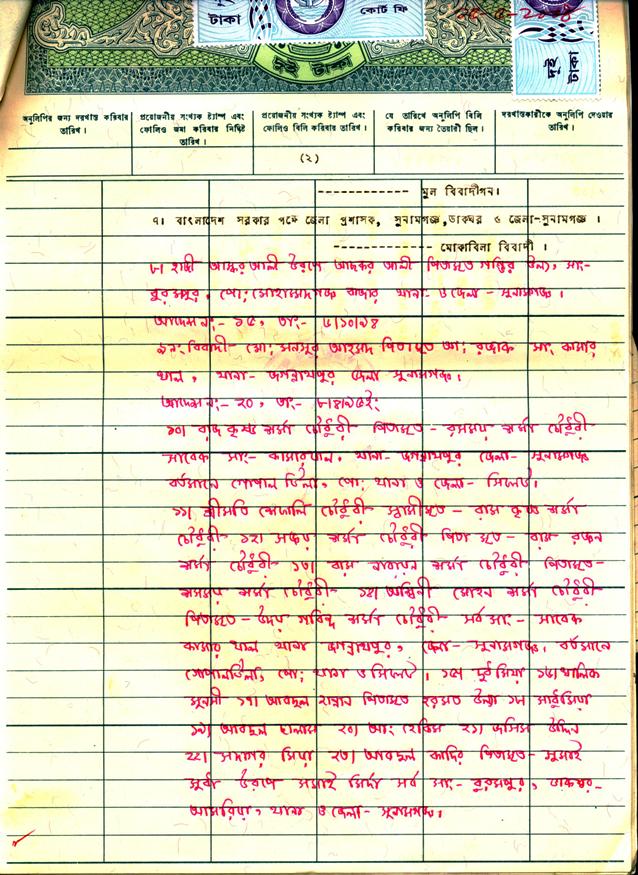 দুই
টাকা
কোর্ট ফি
দুই টাকা
দুই
টাকা
অনুলিপির জন্য দরখাস্ত করিবার তারিখ।
প্রয়োজনীয় সংখ্যক ষ্ট্যাম্প এবং ফোলিও জমা করিবার নির্দিষ্ট তারিখ।
প্রয়োজনীয় সংখ্যক ষ্ট্যাম্প এবং ফোলিও বিলি করিবার তারিখ।
যে তারিখে অনুলিপি বিলি করিবার জন্য তৈয়ারী ছিল।
দরখাস্তকারীকে অনুলিপি দেওয়ার তারিখ।
(২)
------------ মুল বিবাদীগন।
৭। বাংলাদেশ সরকার পক্ষে জেলা প্রশাসক, সুনামগঞ্জ,ডাকঘর ও জেলা-সুনামগঞ্জ ।
------------- মোকাবিলা বিবাদী ।
৮। হাজী আস্কর আলী উরপে আছকর আলী পিতামৃত সাং-
বাজার থানা- ও জেলা - সুনামগঞ্জ।
আদেশ নং- ১৫, তাং-
বিবাদী- মোঃ মনসুর আহমদ পিতামৃত আঃ রজাক সাং কামার
খাল, থানা- জগন্নাথপুর জেলা সুনামগঞ্জ।
আদেশ নং- ২০, তাং-
১০। রাজ কৃষ্ণ শর্ম্মা চৌধুরী পিতামৃত- রসময় শর্ম্মা চৌধুরী
সাবেক সাং- কামারখাল, থানা- জগন্নাথপুর জেলা- সুনামগঞ্জ
বর্তমানে গোপাল টিলা, পোঃ থানা ও জেলা- সিলেট।
১১। শ্রীমতি চৌধুরী স্বামীমৃত- রাম কৃষ্ণ শর্ম্মা
চৌধুরী ১২। শর্ম্মা চৌধুরী পিতা মৃত- রাম রঞ্জন
শর্ম্মা চৌধুরী ১৩। রাম নারায়ন শর্ম্মা চৌধুরী পিতামৃত-
রসময় শর্ম্মা চৌধুরী ১৪। অশ্বিনী মোহন শর্ম্মা চৌধুরী
পিতামৃত- উদয় শর্ম্মা চৌধুরী সর্ব সাং- সাবেক
কামার খাল থানা জগন্নাথপুর, জেলা- সুনামগঞ্জ, বর্তমানে
গোপালটিলা, পোঃ থানা ও সিলেট। ১৫। মিয়া ১৬। খালিক
১৭। আবদুল হান্নান পিতামৃত উল্যা ১৮।
১৯। আবদুল ছালাম ২০। আঃ ২১। জসিম উদ্দিন
২২। মিয়া ২৩। আবদুল কাদির পিতামৃত-
উরপে সর্ব সাং- ডাকঘর-
থানা ও জেলা- সুনামগঞ্জ।